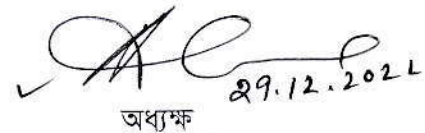 29.12.2021
অধ্যক্ষ